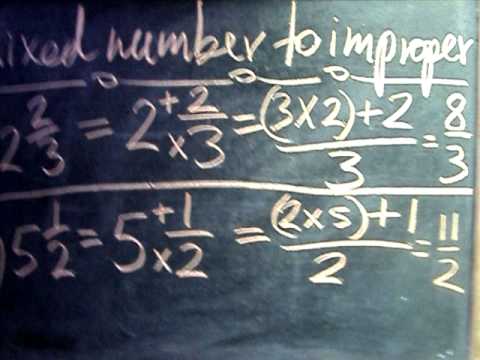 mixed number to improper
2 2/3 = 2 + 2 / × 3 = (3×2)+2 / 3 = 8/3
) 5 1/2 = 5 + 1 / × 2 = (2×5)+1 / 2 = 11/2